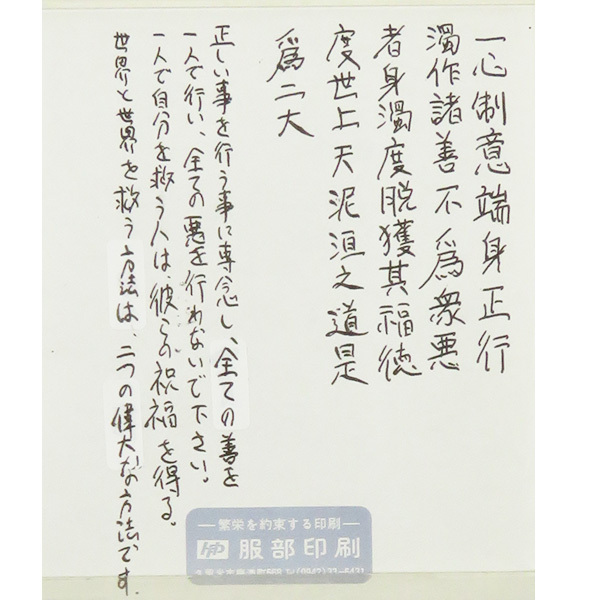 一心制意端身正行
濁作諸善不為衆悪
者身濁度脱獲其福徳
度世上天泥洹之道是
為二大
正しい事を行う事に専念し、全ての善を
一人で行い、全ての悪を行わないで下さい。
一人で自分を救う人は、彼らの祝福を得る。
世界と世界を救う方法は、二つの偉大な方法です。
繁栄を約束する印刷
服部印刷